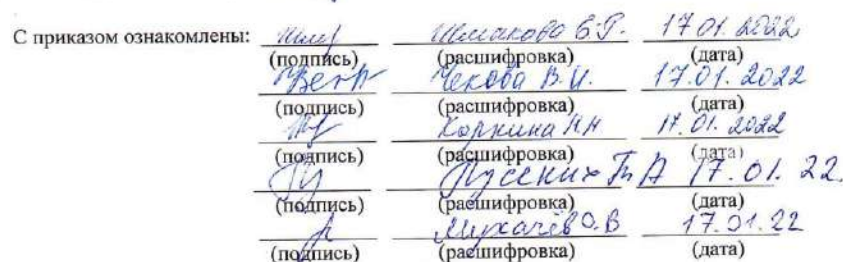 С приказом ознакомлены: Шмакова Е.Р. 17.01.2022
(подпись) (расшифровка) (дата)
Чекова В.И. 17.01.2022
(подпись) (расшифровка) (дата)
Коркина Н.Н 17.01.2022
(подпись) (расшифровка) (дата)
Русских Т А 17.01.22
(подпись) (расшифровка) (дата)
Мухачёв О.В 17.01.22
(подпись) (расшифровка) (дата)